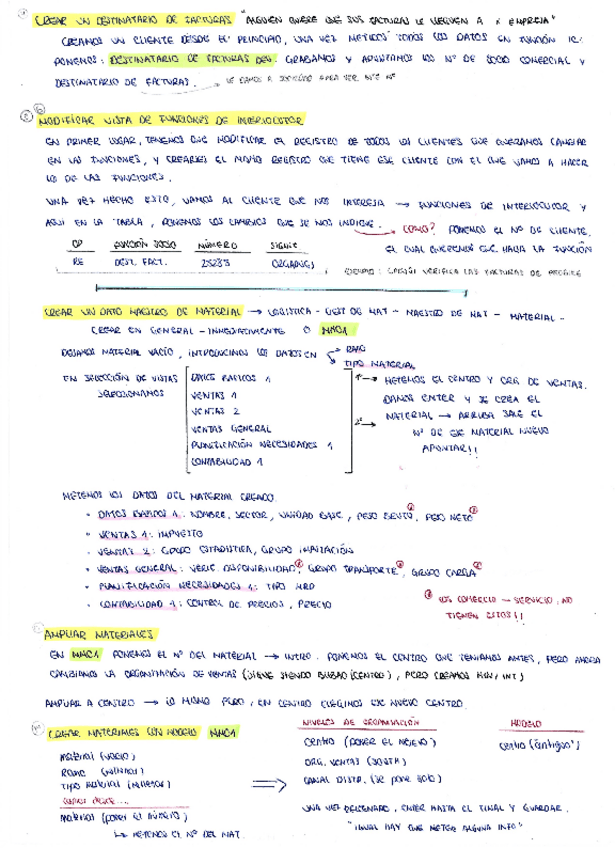 CREAR UN DESTINATARIO DE FACTURAS "ALGUIEN QUIERE QUE SUS FACTURAS LE LLEGUEN A X EMPRESA"
CREAMOS UN CLIENTE DESDE EL PRINCIPIO, UNA VEZ METIDOS TODOS LOS DATOS EN FUNCIÓN IC:
PONEMOS: DESTINATARIO DE FACTURAS DEU. GRABAMOS Y APUNTAMOS LOS Nº DE SOCIO COMERCIAL Y
DESTINATARIO DE FACTURAS. LE DAMOS A PARA VER ESTE Nº
MODIFICAR VISTA DE FUNCIONES DE INTERLOCUTOR
EN PRIMER LUGAR, TENEMOS QUE MODIFICAR EL REGISTRO DE TODOS LOS CLIENTES QUE QUERAMOS CAMBIAR
EN LAS FUNCIONES, Y CREARLES EL MISMO REGISTRO QUE TIENE ESE CLIENTE CON EL QUE VAMOS A HACER
LO DE LAS FUNCIONES.
UNA VEZ HECHO ESTO, VAMOS AL CLIENTE QUE NOS INTERESA → FUNCIONES DE INTERLOCUTOR Y
AQUÍ EN LA TABLA, PONEMOS LOS CAMBIOS QUE SE NOS INDIQUE. → COMO? PONEMOS EL Nº DE CLIENTE,
EL CUAL QUEREMOS QUE HAGA LA FUNCIÓN
OP FUNCIÓN SOCIO NÚMERO
RE DEST. FACT.
EJEMPLO: VERIFICA LAS FACTURAS DE
CREAR UN DATO MAESTRO DE MATERIAL → LOGISTICA - GEST DE MAT - MAESTRO DE MAT - MATERIAL -
CREAR EN GENERAL - INMEDIATAMENTE O MM01
DEJAMOS MATERIAL VACÍO, INTRODUCIMOS LOS DATOS EN RAMO
TIPO MATERIAL
EN SELECCIÓN DE VISTAS
SELECCIONAMOS
DATOS BÁSICOS 1
VENTAS 1
VENTAS 2
VENTAS GENERAL
PLANIFICACIÓN NECESIDADES 1
CONTABILIDAD 1
1º → METEMOS EL CENTRO Y ORG DE VENTAS.
DAMOS ENTER Y SE CREA EL
2º → MATERIAL → ARRIBA SALE EL
Nº DE ESE MATERIAL NUEVO
APUNTAR!!
METEMOS LOS DATOS DEL MATERIAL CREADO
- DATOS BÁSICOS 1: NOMBRE, SECTOR, UNIDAD BASE, PESO BRUTO, PESO NETO
- VENTAS 1: IMPUESTO
- VENTAS 2: GRUPO ESTADISTICA, GRUPO IMPUTACIÓN
- VENTAS GENERAL: VERIF. DISPONIBILIDAD, GRUPO TRANSPORTE, GRUPO CARGA
- PLANIFICACIÓN NECESIDADES 1: TIPO MRD
- CONTABILIDAD 1: CONTROL DE PRECIOS, PRECIO
LOS COMERCIO - SERVICIO, NO
TIENEN
AMPLIAR MATERIALES
EN MM01 PONEMOS EL Nº DEL MATERIAL → INTRO. PONEMOS EL CENTRO QUE TENIAMOS ANTES, PERO AHORA
CAMBIAMOS LA ORGANIZACIÓN DE VENTAS (SIGUE SIENDO BILBAO (CENTRO), PERO CREAMOS MIN/INT)
AMPLIAR A CENTRO → LO MISMO PERO, EN CENTRO ELEGIMOS ESE NUEVO CENTRO.
CREAR MATERIALES CON MODELO MM01
Material (vacío)
Ramo (metemos)
Tipo material (metemos)
copiar desde....
Material (poner el número)
↳ METEMOS EL Nº DEL MAT.
NIVELES DE ORGANIZACIÓN
CENTRO (PONER EL NUEVO)
ORG. VENTAS
CANAL DISTR. (se pone solo)
MODELO
CENTRO (antiguo)
UNA VEZ RELLENADO, ENTER HASTA EL FINAL Y GUARDAR.
"IGUAL HAY QUE METER ALGUNA INFO"